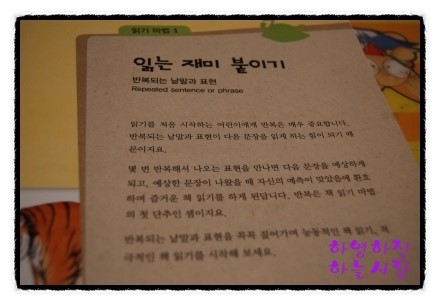 읽기 마법 1
읽는 재미 붙이기
반복되는 낱말과 표현
Repeated sentence or phrase
읽기를 처음 시작하는 어린이에게 반복은 매우 중요합니다.
반복되는 낱말과 표현이 다음 문장을 읽게 하는 힘이 되기 때
문이지요.
몇 번 반복해서 나오는 표현을 만나면 다음 문장을 예상하게
되고, 예상한 문장이 나왔을 때 자신의 예측이 맞았음에 환호
하며 즐거운 책 읽기를 하게 된답니다. 반복은 책 읽기 마법
의 첫 단추인 셈이지요.
반복되는 낱말과 표현을 꼭꼭 짚어가며 능동적인 책 읽기, 적
극적인 책 읽기를 시작해 보세요.
하영하진
하늘사랑